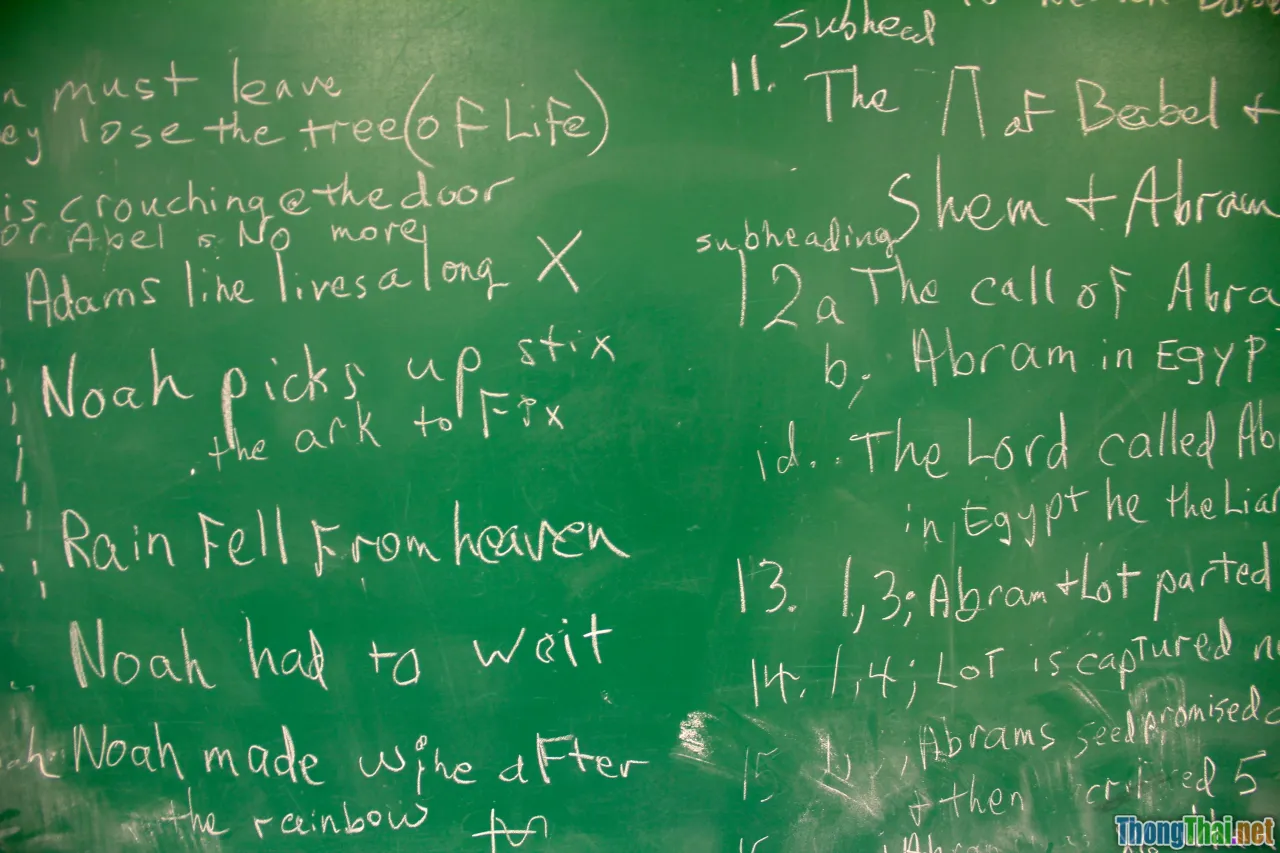 must leave
lose the tree (of Life)
is crouching @ the door
or Abel is No more
Adams line lives along X
Noah picks up stix
the ark to Fix
Rain Fell From heaven
Noah had to wait
Noah made wine after
the rainbow
Subhead
11. The Π of Babel +
Shem + Abram
subheading
12a The call of Abra
b; Abram in Egyp
id.. The Lord called Ab
in Egypt he the Liar
13. 1,3; Abram + Lot parted
14. 1,4; LoT is captured
15 Abrams seed promised
+ then 5
ThongThai.net